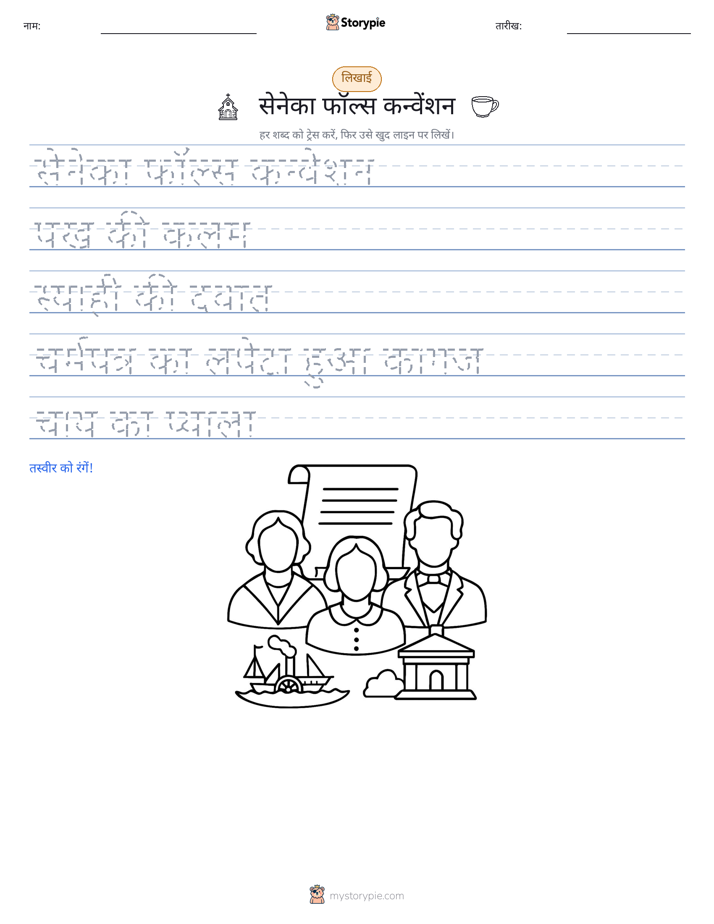 नाम:
Storypie
तारीख:
लिखाई
सेनेका फॉल्स कन्वेंशन
हर शब्द को ट्रेस करें, फिर उसे खुद लाइन पर लिखें।
सेनेका फॉल्स कन्वेंशन
पंख की कलम
स्याही की दवात
चर्मपत्र का लपेटा हुआ कागज
चाय का प्याला
तस्वीर को रंगें!
mystorypie.com